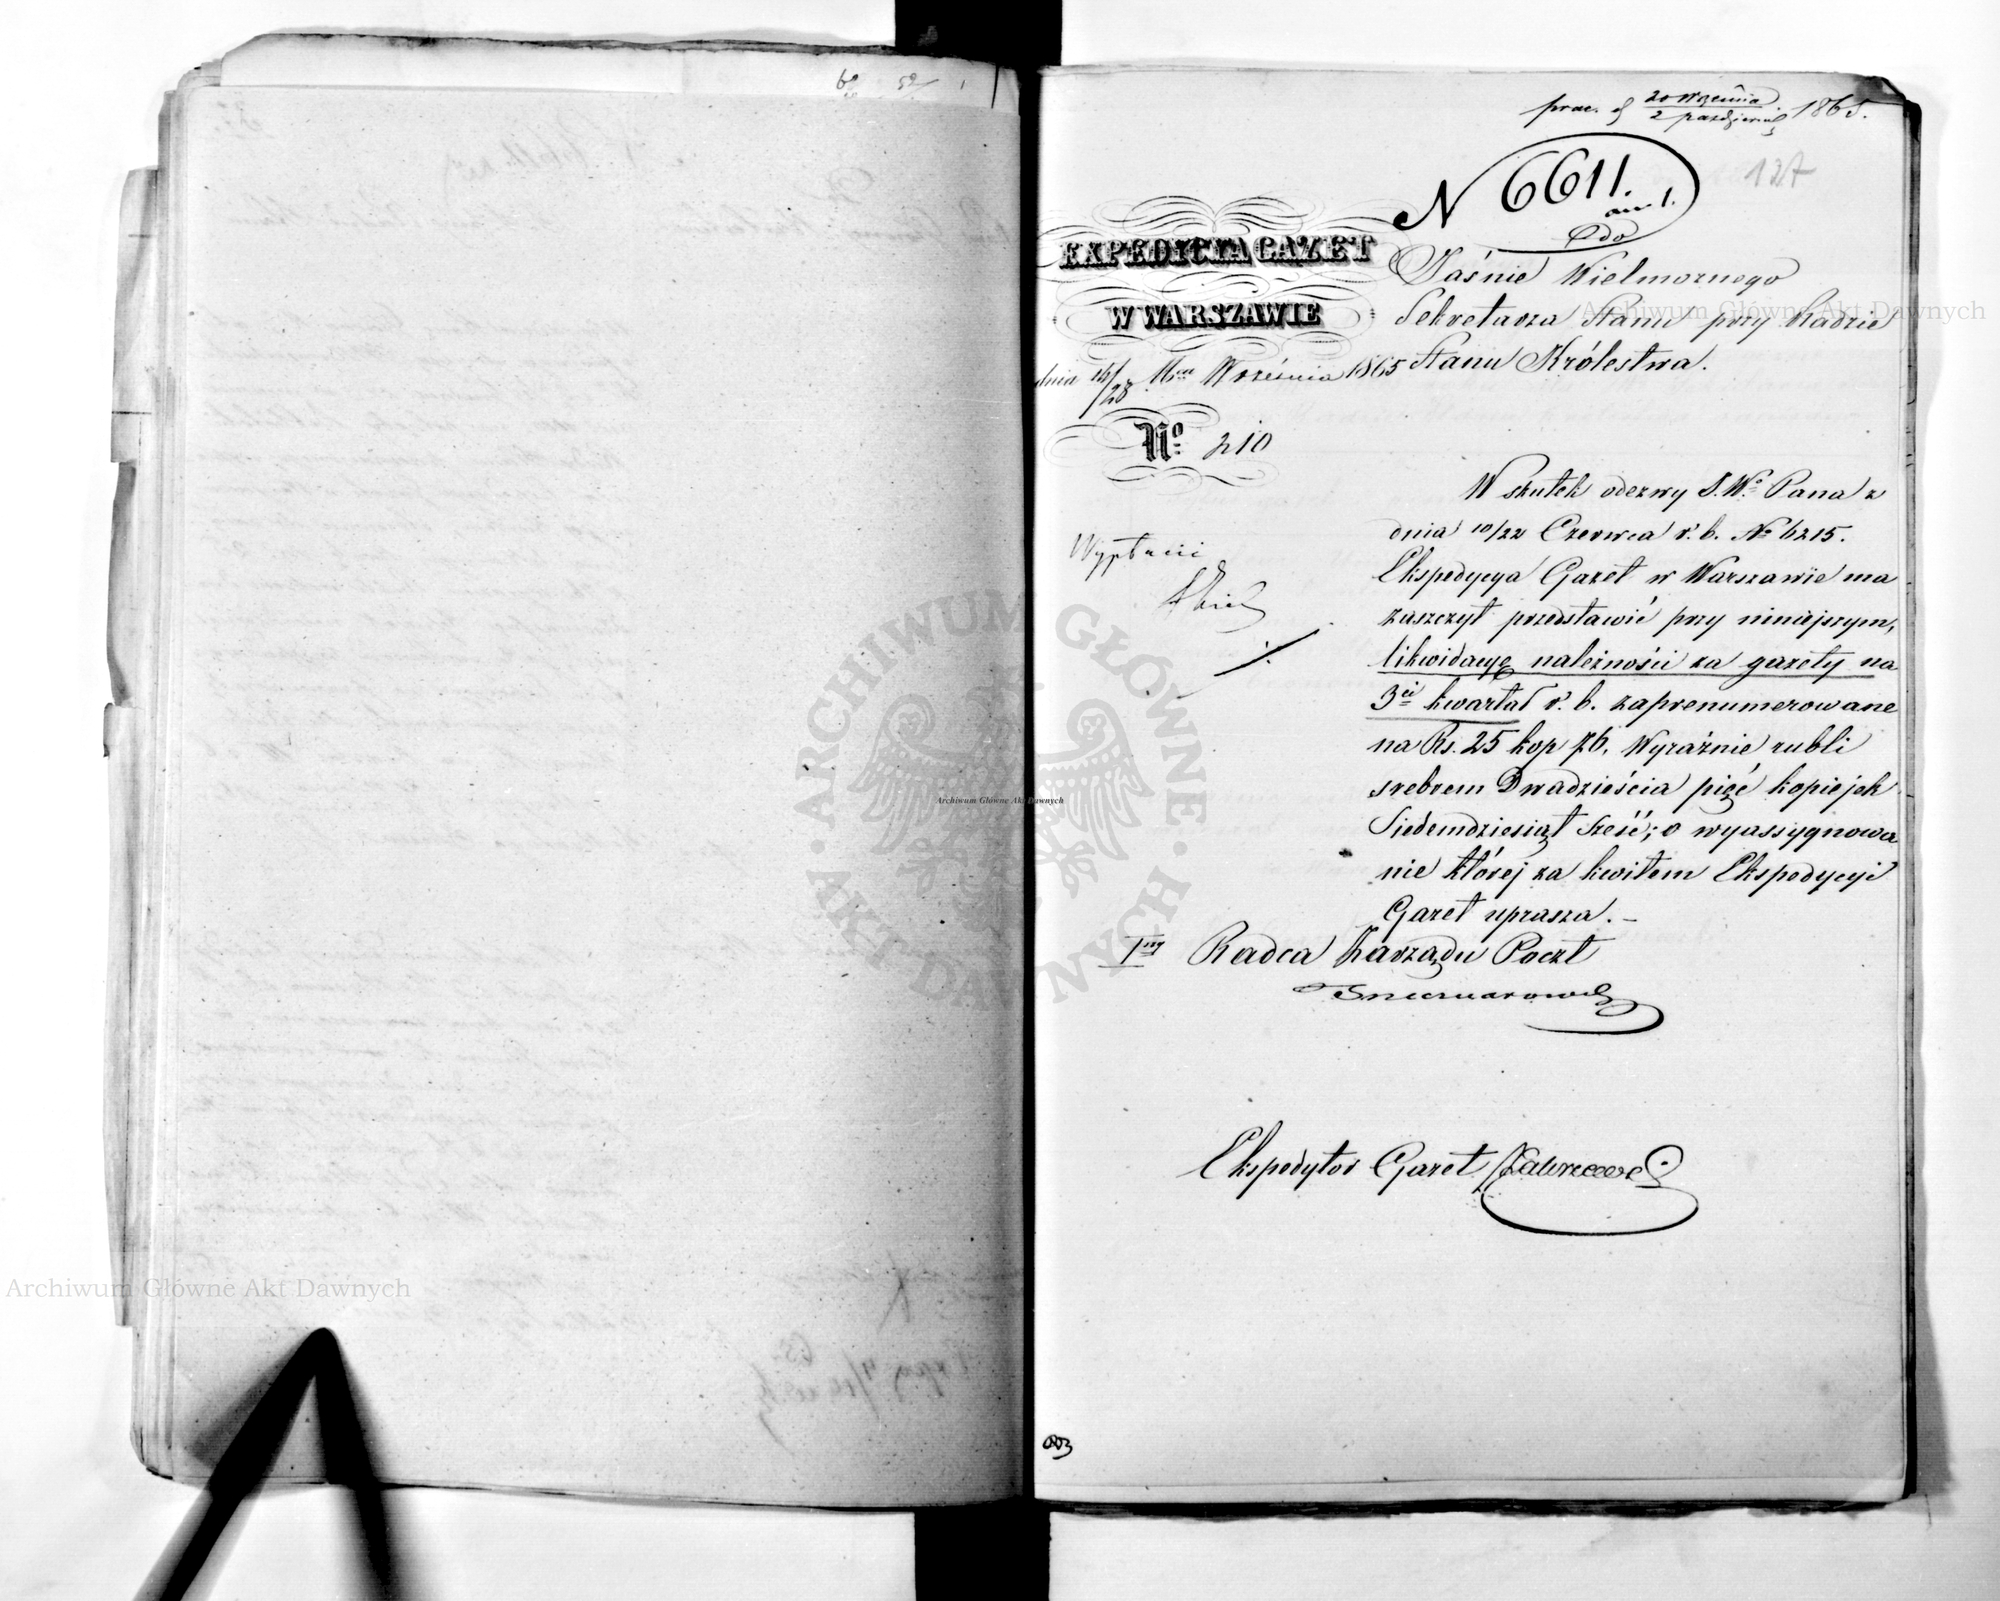 1865.
N 6611.
Do
127
EXPEDYCIA GAZET
W WARSZAWIE
dnia 16/28 Mca Września 1865
No 210
Jaśnie Wielmożnego
Sekretarza Stanu przy Radzie
Stanu Królestwa.
W skutek odezwy J.Wo Pana z
dnia 10/22 Czerwca r. b. No 6215.
Ekspedycya Gazet w Warszawie ma
zaszczyt przedstawić przy niniejszym,
likwidacyę należności za gazety na
3ci kwartał r. b. zaprenumerowane
na Rs. 25 kop 76, Wyraźnie rubli
srebrem Dwadzieścia pięć kopiejek
Siedemdziesiąt Sześć; o wyassygnowa
nie której za kwitem Ekspedycyi
Gazet uprasza. –
Wypłacić
Radca Zarządu Poczt
Ekspedytor Gazet
Archiwum Główne Akt Dawnych
Archiwum Główne Akt Dawnych
Archiwum Główne Akt Dawnych
ARCHIWUM GŁÓWNE
AKT DAWNYCH